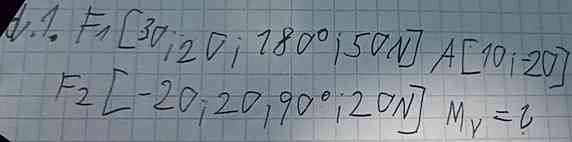 d.1. F1 [30;20; 180°;50N] A[10;-20]
F2 [-20;20;90°;20N] Mv = ?